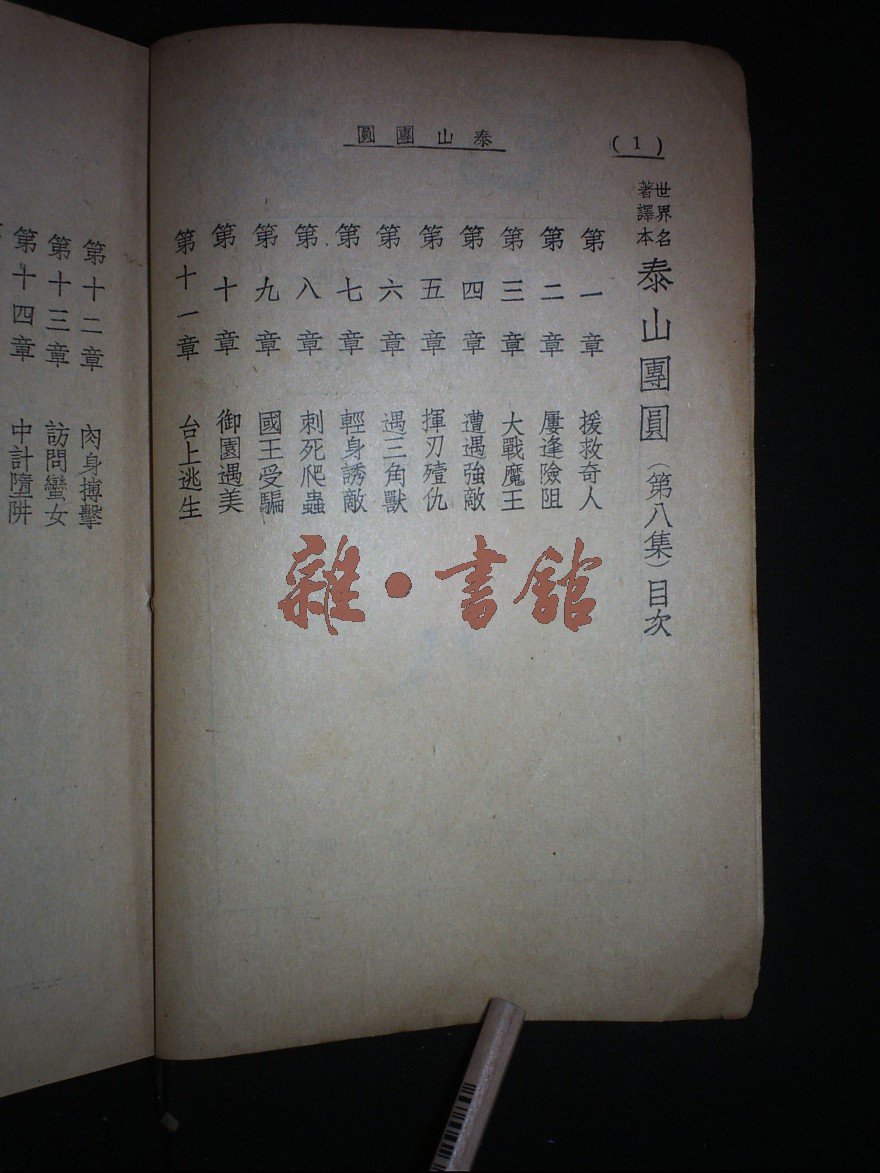 (1)
泰山團圓
世界名著譯本 泰山團圓(第八集)目次
第一章 援救奇人
第二章 屢逢險阻
第三章 大戰魔王
第四章 遭遇強敵
第五章 揮刃殪仇
第六章 遇三角獸
第七章 輕身誘敵
第八章 刺死爬蟲
第九章 國王受騙
第十章 御園遇美
第十一章 台上逃生
第十二章 肉身搏擊
第十三章 訪問蠻女
第十四章 中計墮阱
雜·書館